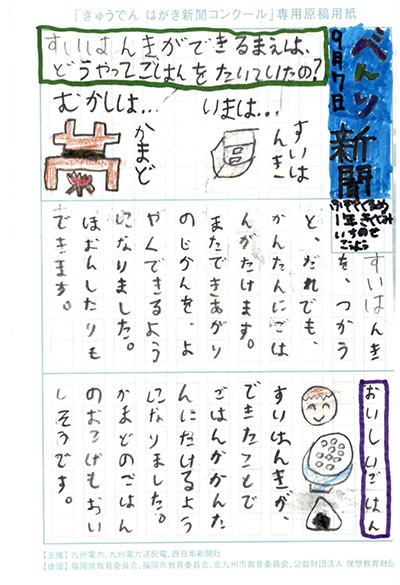 「きゅうでん はがき新聞コンクール」専用原稿用紙
べんり新聞
9月7日
すいはんきができるまえは、
どうやってごはんをたいていたの?
いまは…
すいは
んき
むかしは…
かまど
1年
いちのせ
すいはんき
を、つかう
と、だれでも、
かんたんにごは
んがたけます。
またできあがり
のじかんを、よ
やくできるよう
になりました。
ほおんしたりも
できます。
おいしいごはん
すいはんきが、
できたことで
ごはんがかんた
んにたけるよう
になりました。
かまどのごはん
のおこげもおい
しそうです。
【主催】九州電力、九州電力送配電、西日本新聞社
【後援】福岡県教育委員会、福岡市教育委員会、北九州市教育委員会、公益財団法人 理想教育財団